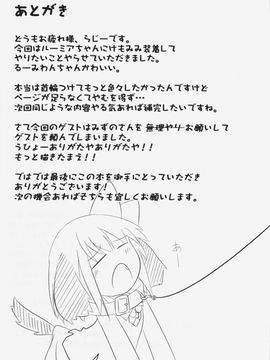 あとがき
どうもお疲れ様、らじーです。
今回はルーミアちゃんにけもみみ装着して
やりたいことやらせていただきました。
るーみわんちゃんかわいい。
本当は首輪つけてもっと色々したかったんですけど
ページが足らなくてやむを得ず…
次回同じような内容やる気があれば補完したいですね。
さて今回のゲストはみずのさんを無理やりお願いして
ゲストを頼んでしまいました。
うひょーありがたやありがたや!!
もっと描きたまえ!!
ではでは最後にこの本を御手にとっていただき
ありがとうございます!
次の機会あればそちらも宜しくお願いします。
あー